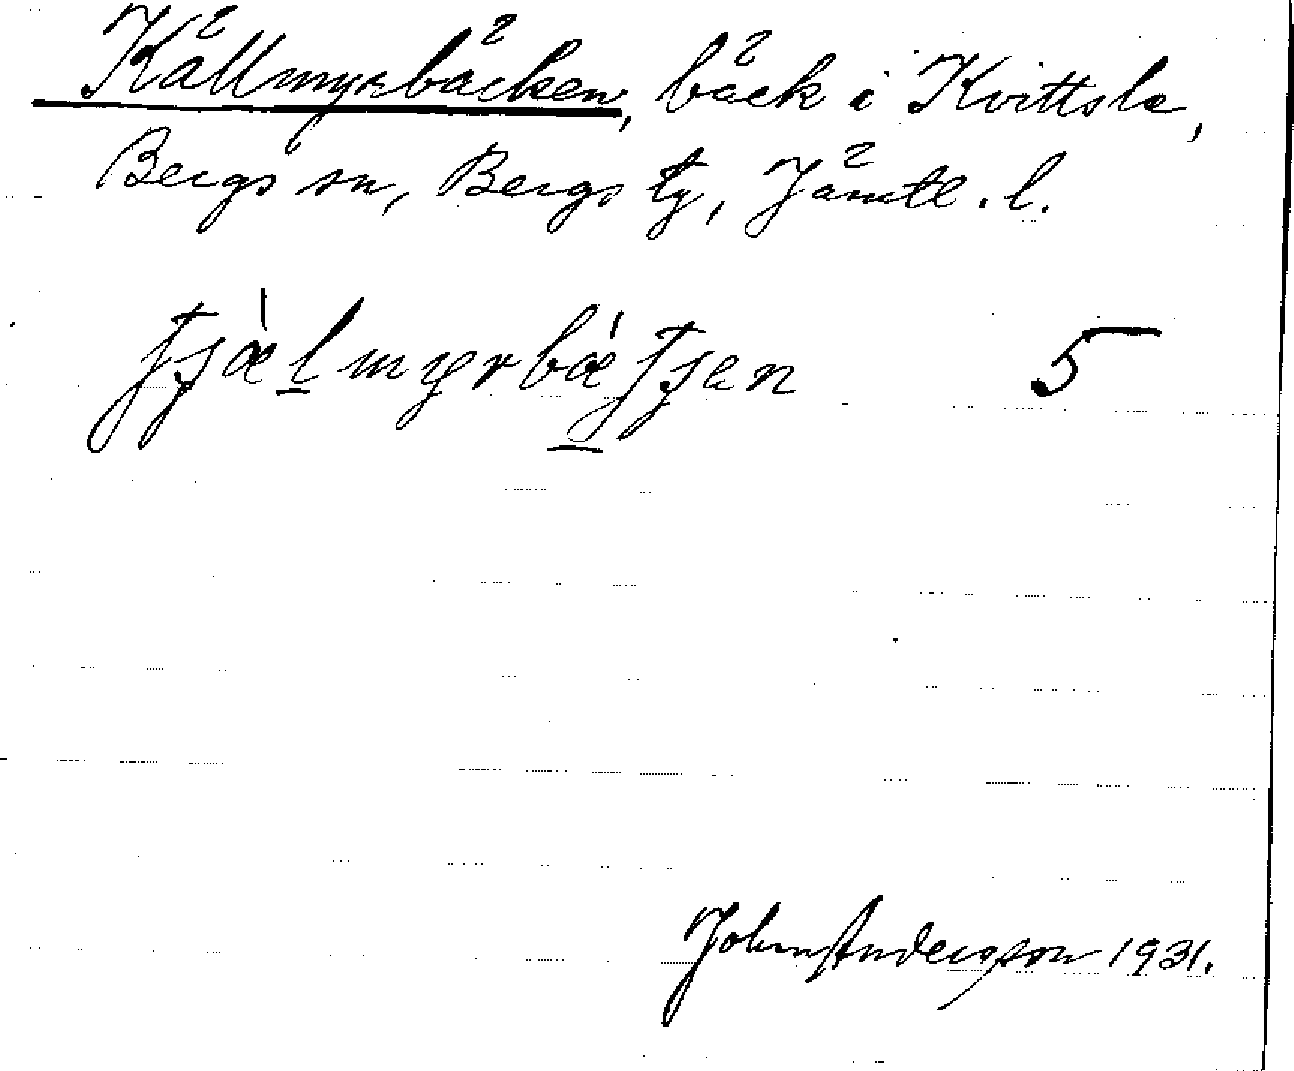 Källmyrbäcken, bäck i Kvittsle,
Bergs sn, Bergs tg, Jämtl. l.
5
John Andersson 1931.